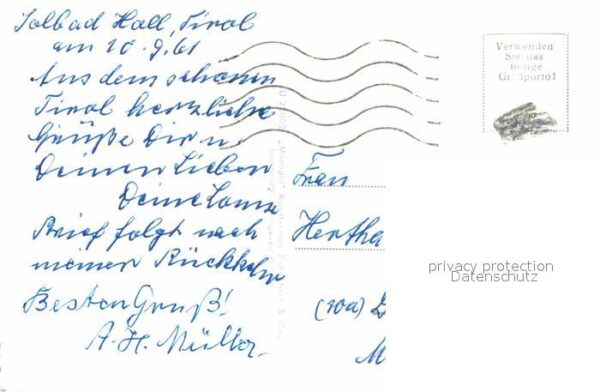 Solbad Hall, Tirol
am 10.9.61
Aus dem schönen
Tirol herzliche
Grüße Dir u.
Deinen Lieben
Deine
Brief folgt nach
meiner Rückkehr
Besten Gruß!
A. H. Müller.
Verwenden
Sie das
billige
Gr. Sporto!
Frau
Hertha
(10a)
M
privacy protection
Datenschutz